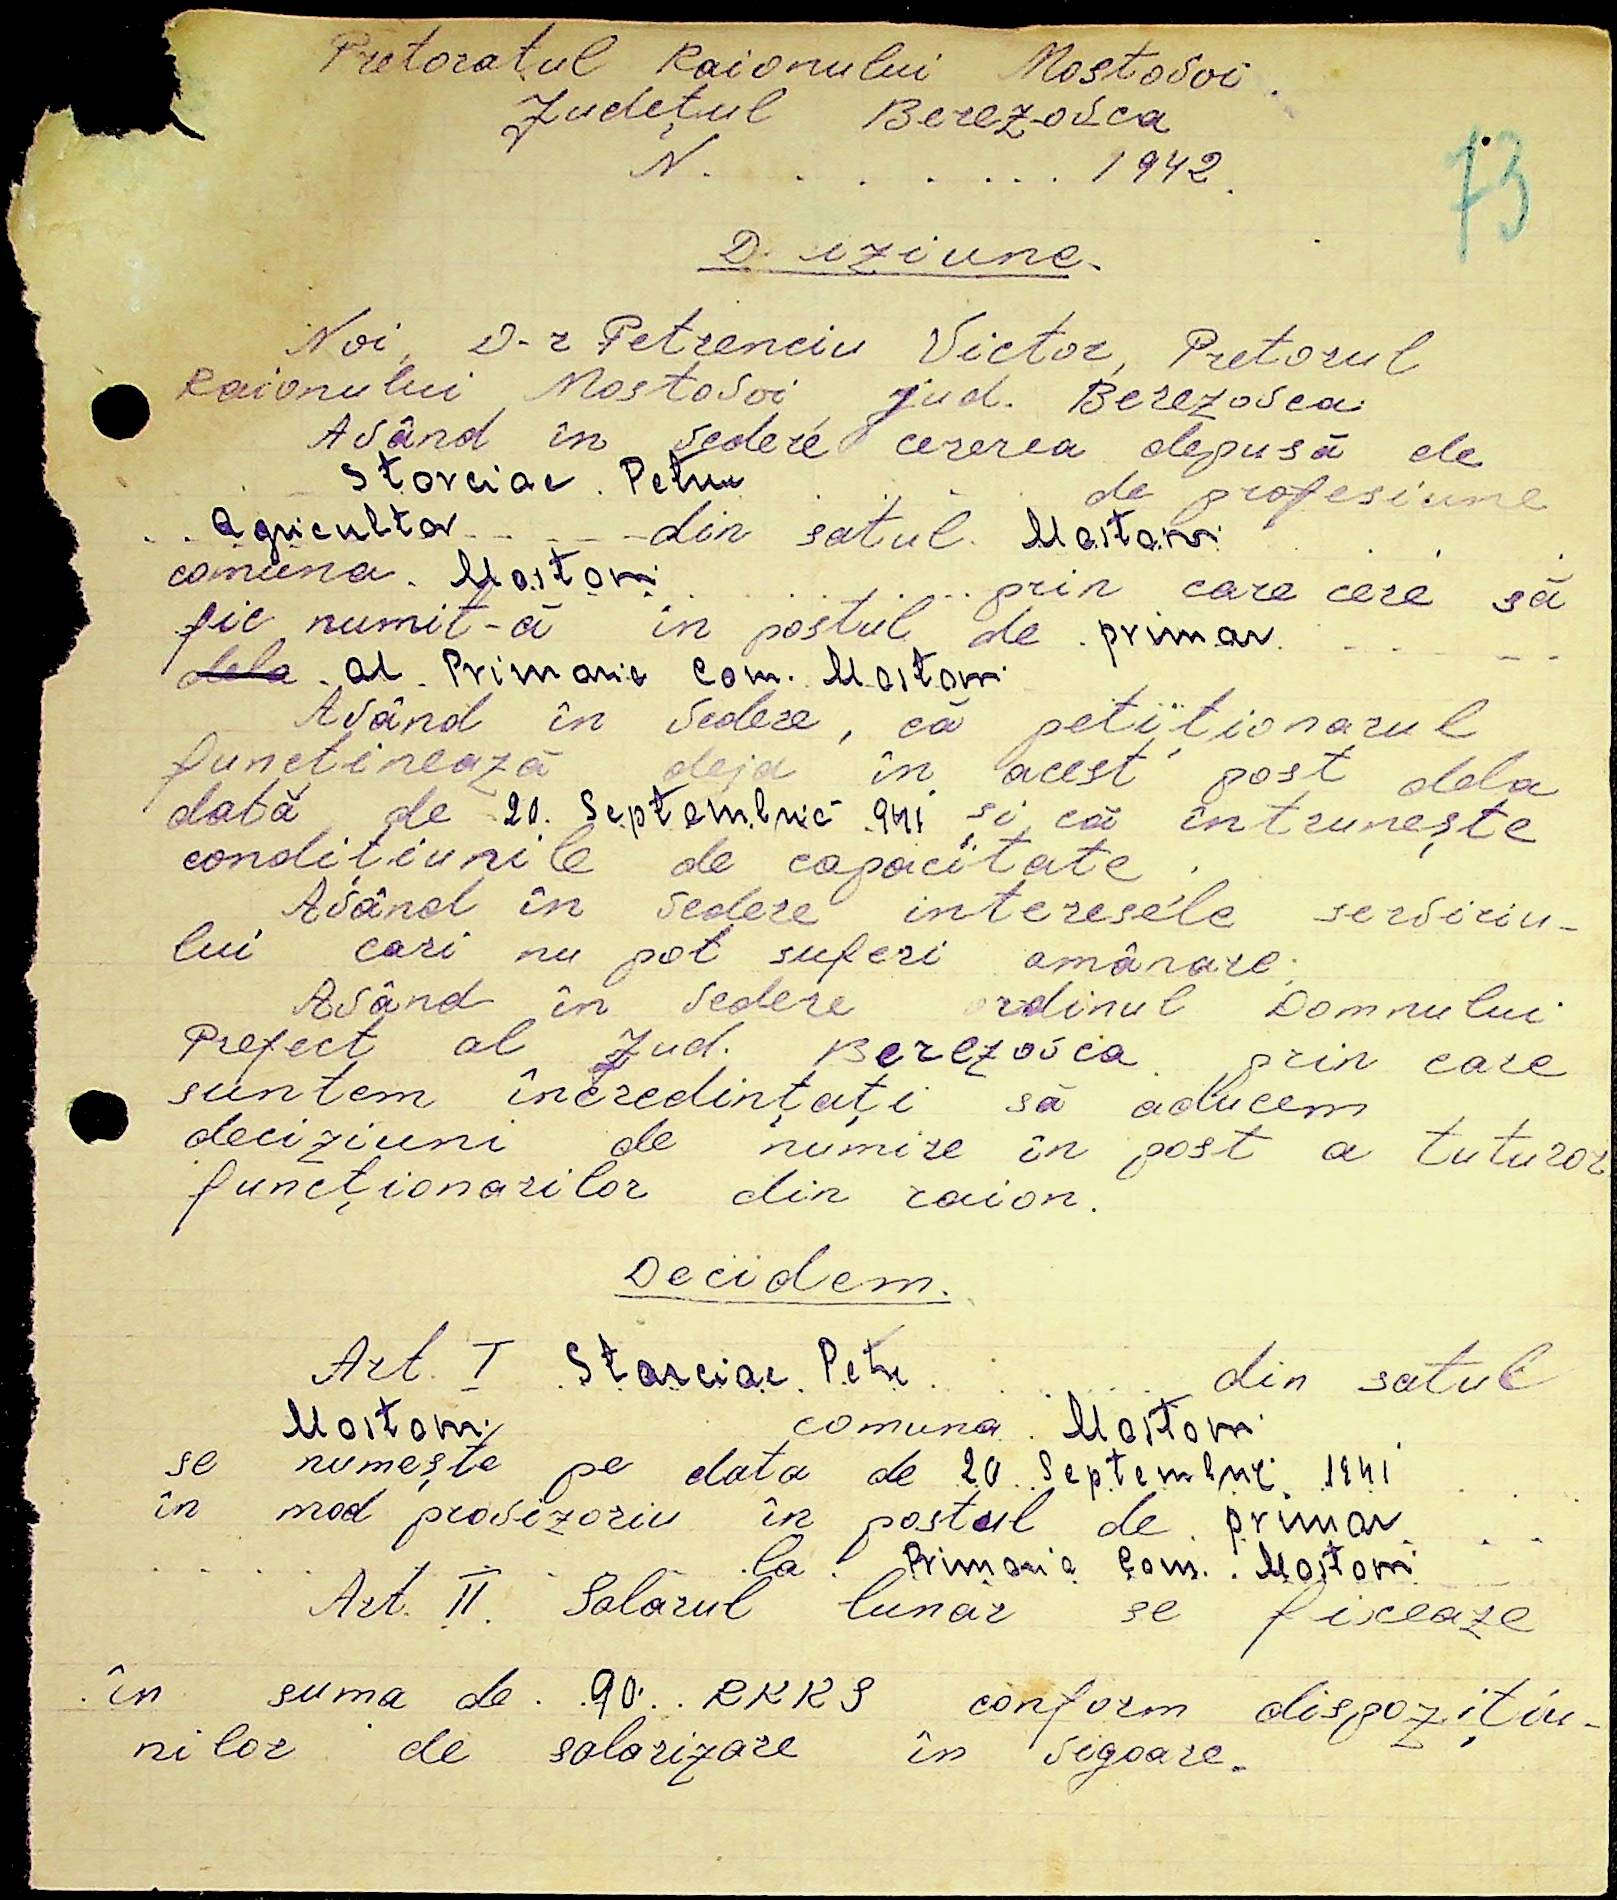 Pretoratul Raionului Mostovoi.
Județul Berezovca
N. . . . . . . . 1942.
73
D. iziune.
Noi, D-r Petrenciu Victor, Pretorul
Raionului Mostovoi jud. Berezovca.
Având în vedere cererea depusă de
Storciac Petru de profesiune
agricultor din satul Mostovoi
comuna Mostovoi prin care cere să
fie numit-ă in postul de primar
dela al Primarie Com. Mostovoi
Având în vedere, că petiiționarul
funcținează deja în acest post dela
dată de 20 Septembrie 941 și că întrunește
condițiunile de capacitate.
Având în vedere interesele serviciu-
lui cari nu pot suferi amânare.
Având în vedere ordinul Domnului
Prefect al Jud. Berezovca prin care
suntem încredințați să aducem
deciziuni de numire în post a tuturor
funcționarilor din raion.
Decidem.
Art. I Starciac Petru din satul
Mostovoi comuna Mostovoi
se numește pe data de 20 Septembrie 1941
în mod provizoriu în postul de primar
la Primaria Com. Mostovoi
Art. II. Salarul lunar se fixeaze
în suma de 90 RKKS conform dispozițiu-
nilor de salarizare în vigoare.